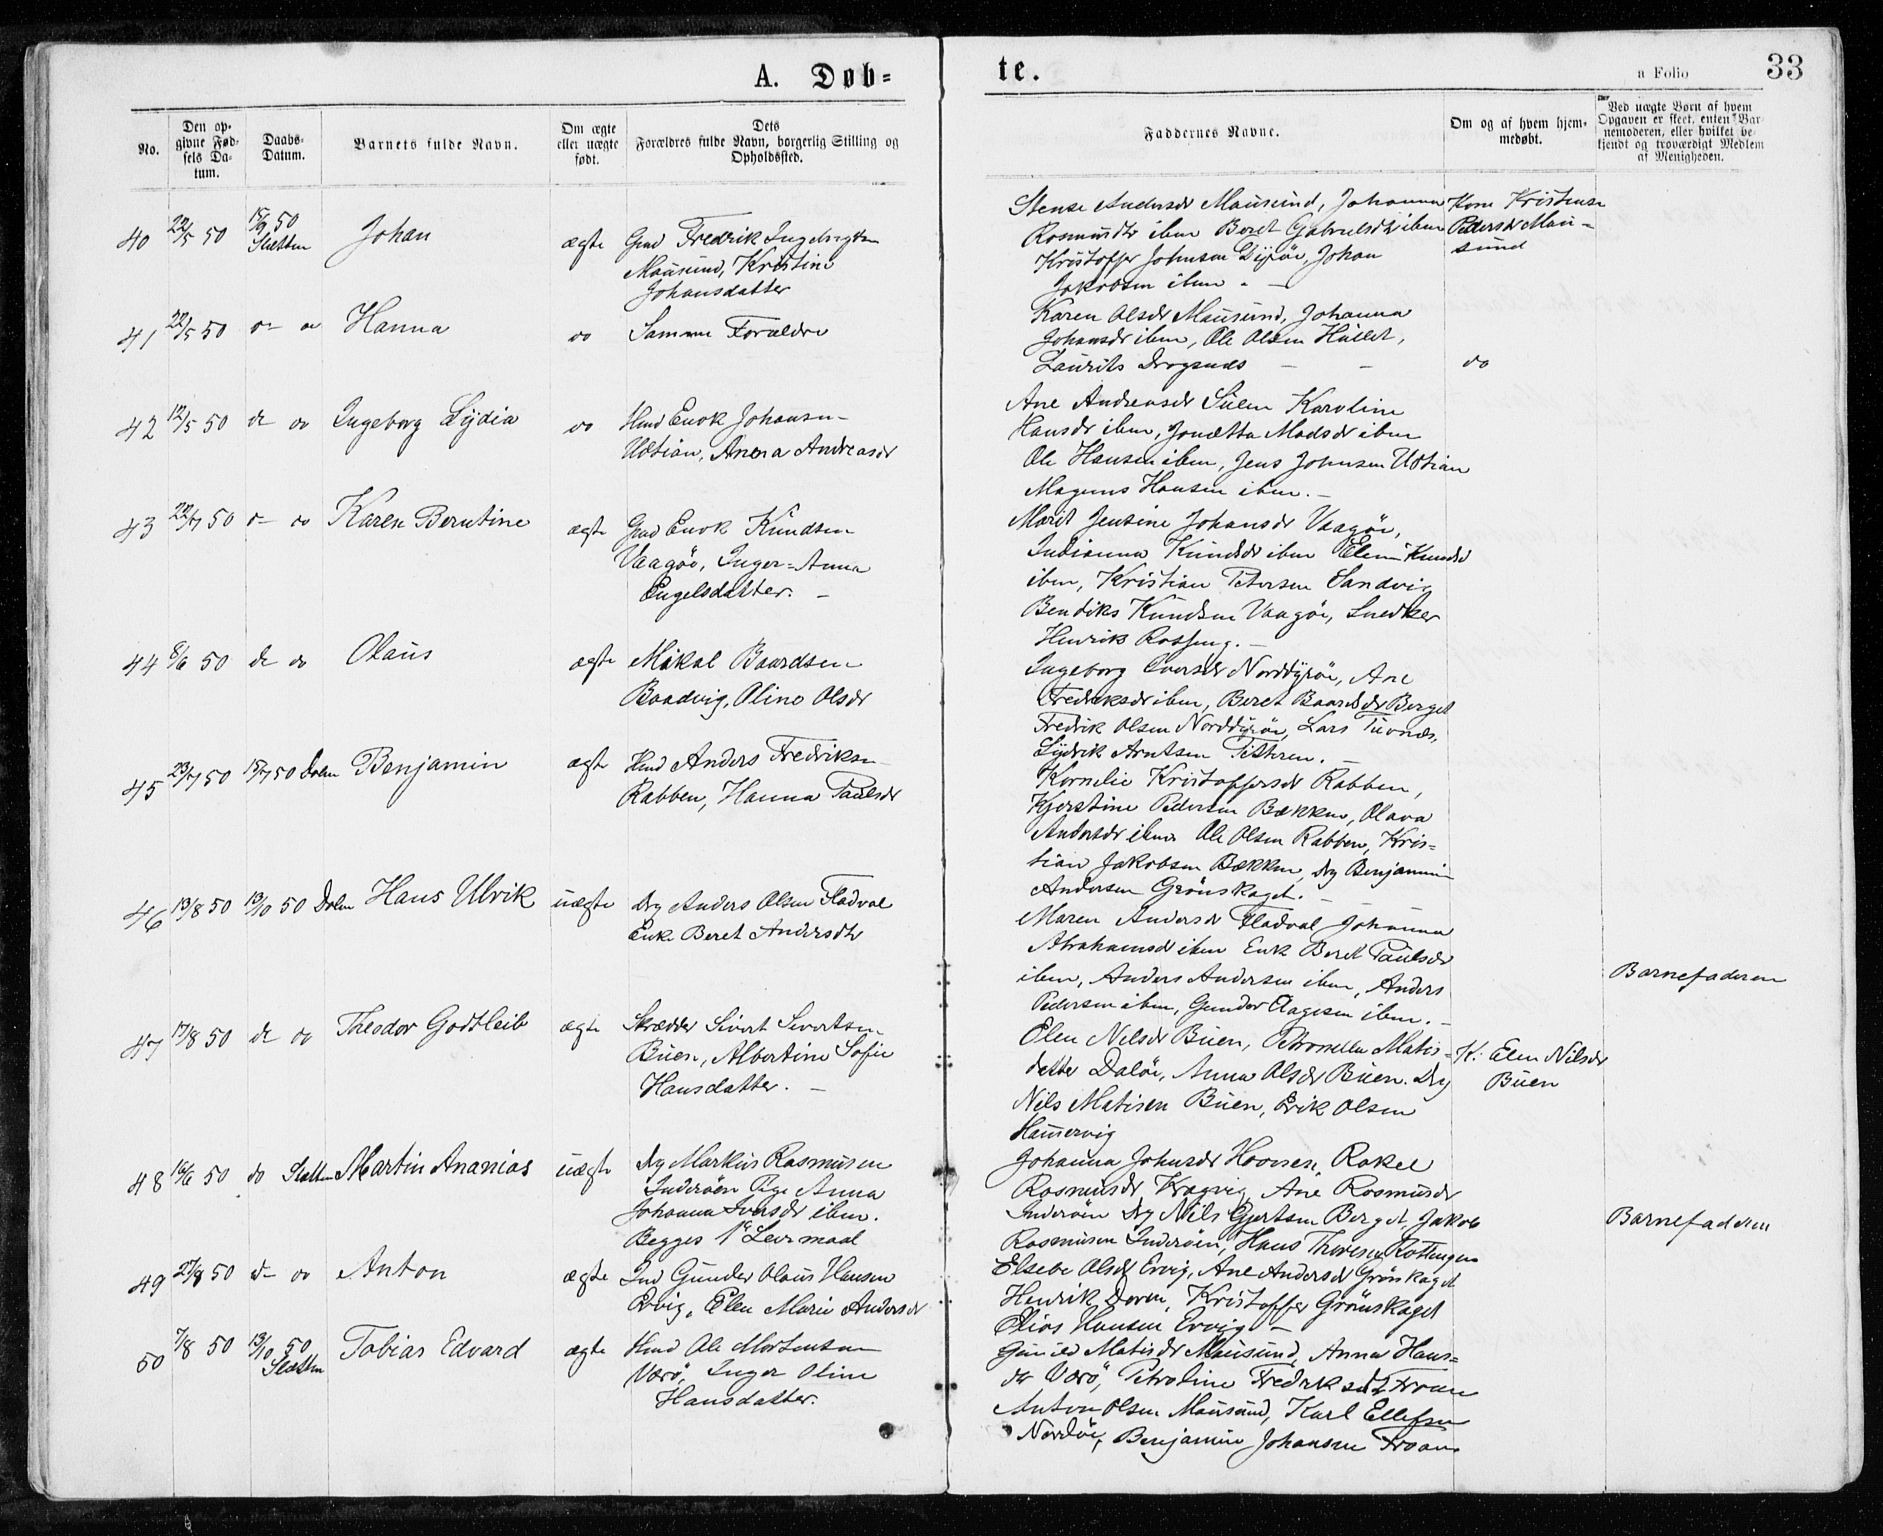 A. Døb=
te.
a Folio 33
No.
Den op-
givne Fød-
sels Da-
tum.
Daabs-
Datum.
Barnets fulde Navn.
Om ægte
eller uægte
født.
Dets
Forældres fulde Navn, borgerlig Stilling og
Opholdssted.
Faddernes Navne.
Om og af hvem hjem-
medøbt.
Ved uægte Børn af hvem
Opgaven er skeet, enten Bar-
nemoderen, eller hvilket be-
kjendt og troværdigt Medlem
af Menigheden.
40 22/5 50 15/9 50
Slatten
Johan
ægte Gmd Fredrik
Mausund, Kristine
Johansdatter
Andersdr Mausund, Johanna
Rasmusdtr ibm Beret Gabrielsdtr ibm
Kristoffer Johnsen Dyröe, Johan
Jakobsen ibm -
Kristense
Pedersdr Mau-
sund
41 22/5 50 Hanna do Samme Forældre
Karen Olsdr Mausund, Johanna
Johansdr ibm, Ole Olsen Hallet,
Laurits Dragsnes - - do
42 12/5 50 do do Ingeborg Lydia do Hmd Enok Johansen
Udtian, Anna Andreasdr
Ane Andreasdr Sulen Karoline
Hansdr ibm, Jonetta Madsdr ibm
Ole Hansen ibm, Jens Johnsen Udtian
Magnus Hansen ibm. -
43 22/7 50 do Karen Berntine ægte Gmd Enok Knudsen
Vaagöe, Inger=Anna
Engelsdatter. -
Marit Jensine Johansdr Vaagöe,
Indianna Knudsdr ibm Elen Knudsd
ibm, Kristian Petersen Sandvig
Bendiks Knudsen Vaagöe, Snedker
Henrik -
44 8/6 50 do do Olaus ægte Mikal Baardsen
Baadvig, Oline Olsdr
Ingeborg Norddyröe, Ane
Fredriksdr ibm, Beret Baardsdr Berget
Fredrik Olsen Norddyröe, Lars Tuvnes,
Arntsen Titteren. -
45 23/7 50 15/7 50 Dolm Benjamin ægte Hmd Anders Fredriksen
Rabben, Hanna Paulsdr
Kornelie Kristoffersdr Rabben,
Kjerstine Pedersen Bækken, Olava
Andersdr ibm Ole Olsen Rabben, Kris=
tian Jakobsen Bækken, Drg Benjamin
Andersen Grönskaget. -
46 13/8 50 13/10 50 Dolm Hans Ulrik uægte Drg Anders Olsen Fladval
Enke Beret Andersdtr
Maren Andersdr Fladval Johanna
Abrahamsd ibm Enk Beret Paulsdr
ibm, Anders Andersen ibm, Anders
Pedersen ibm, Gunder Aagesen ibm. -
Barnefaderen
47 17/8 50 do do Theodor Godtleib ægte Skrædder Sivert Sivertsen
Buen, Albertine Sofie
Hansdatter. -
Elen Nilsdr Buen, Petronella Matis-
datter Dalöe, Anna Olsdr Buen. Drg
Nils Matisen Buen, Erik Olsen
Hamervig
K: Elen Nilsdr
Buen
48 16/6 50 do Slatten Martin Ananias uægte Drg Markus Rasmusen
Inderöen Pige Anna
Johanna Iversdr ibm.
Begges 1e Leiermaal
Johanna Johnsdr Hovsen, Rakel
Rasmusdr Kragvig, Ane Rasmusdr
Inderöen Drg Nils Gjertsen Berget, Jakob
Rasmusen Inderöen, Hans Rottingen
Barnefaderen
49 27/8 50 do Anton ægte Ind Gunder Olaus Hansen
Ervig, Elen Marie Andersdr
Elsebe Olsdr Ervig, Ane Andersdr Grönskaget
Henrik Doren, Kristoffer Grönskaget
Elias Hansen Ervig -
50 7/8 50 13/10 50
Slatten
Tobias Edvard ægte Hmd Ole Mortensen
Værö, Inger Oline
Hansdatter.
Gunild Matisdr Mausund, Anna Hans=
dr Værö, Petroline Fredriksdtr Froan
Anton Olsen Mausund, Karl Ellefsen
Nordöe, Benjamin Johansen Froan